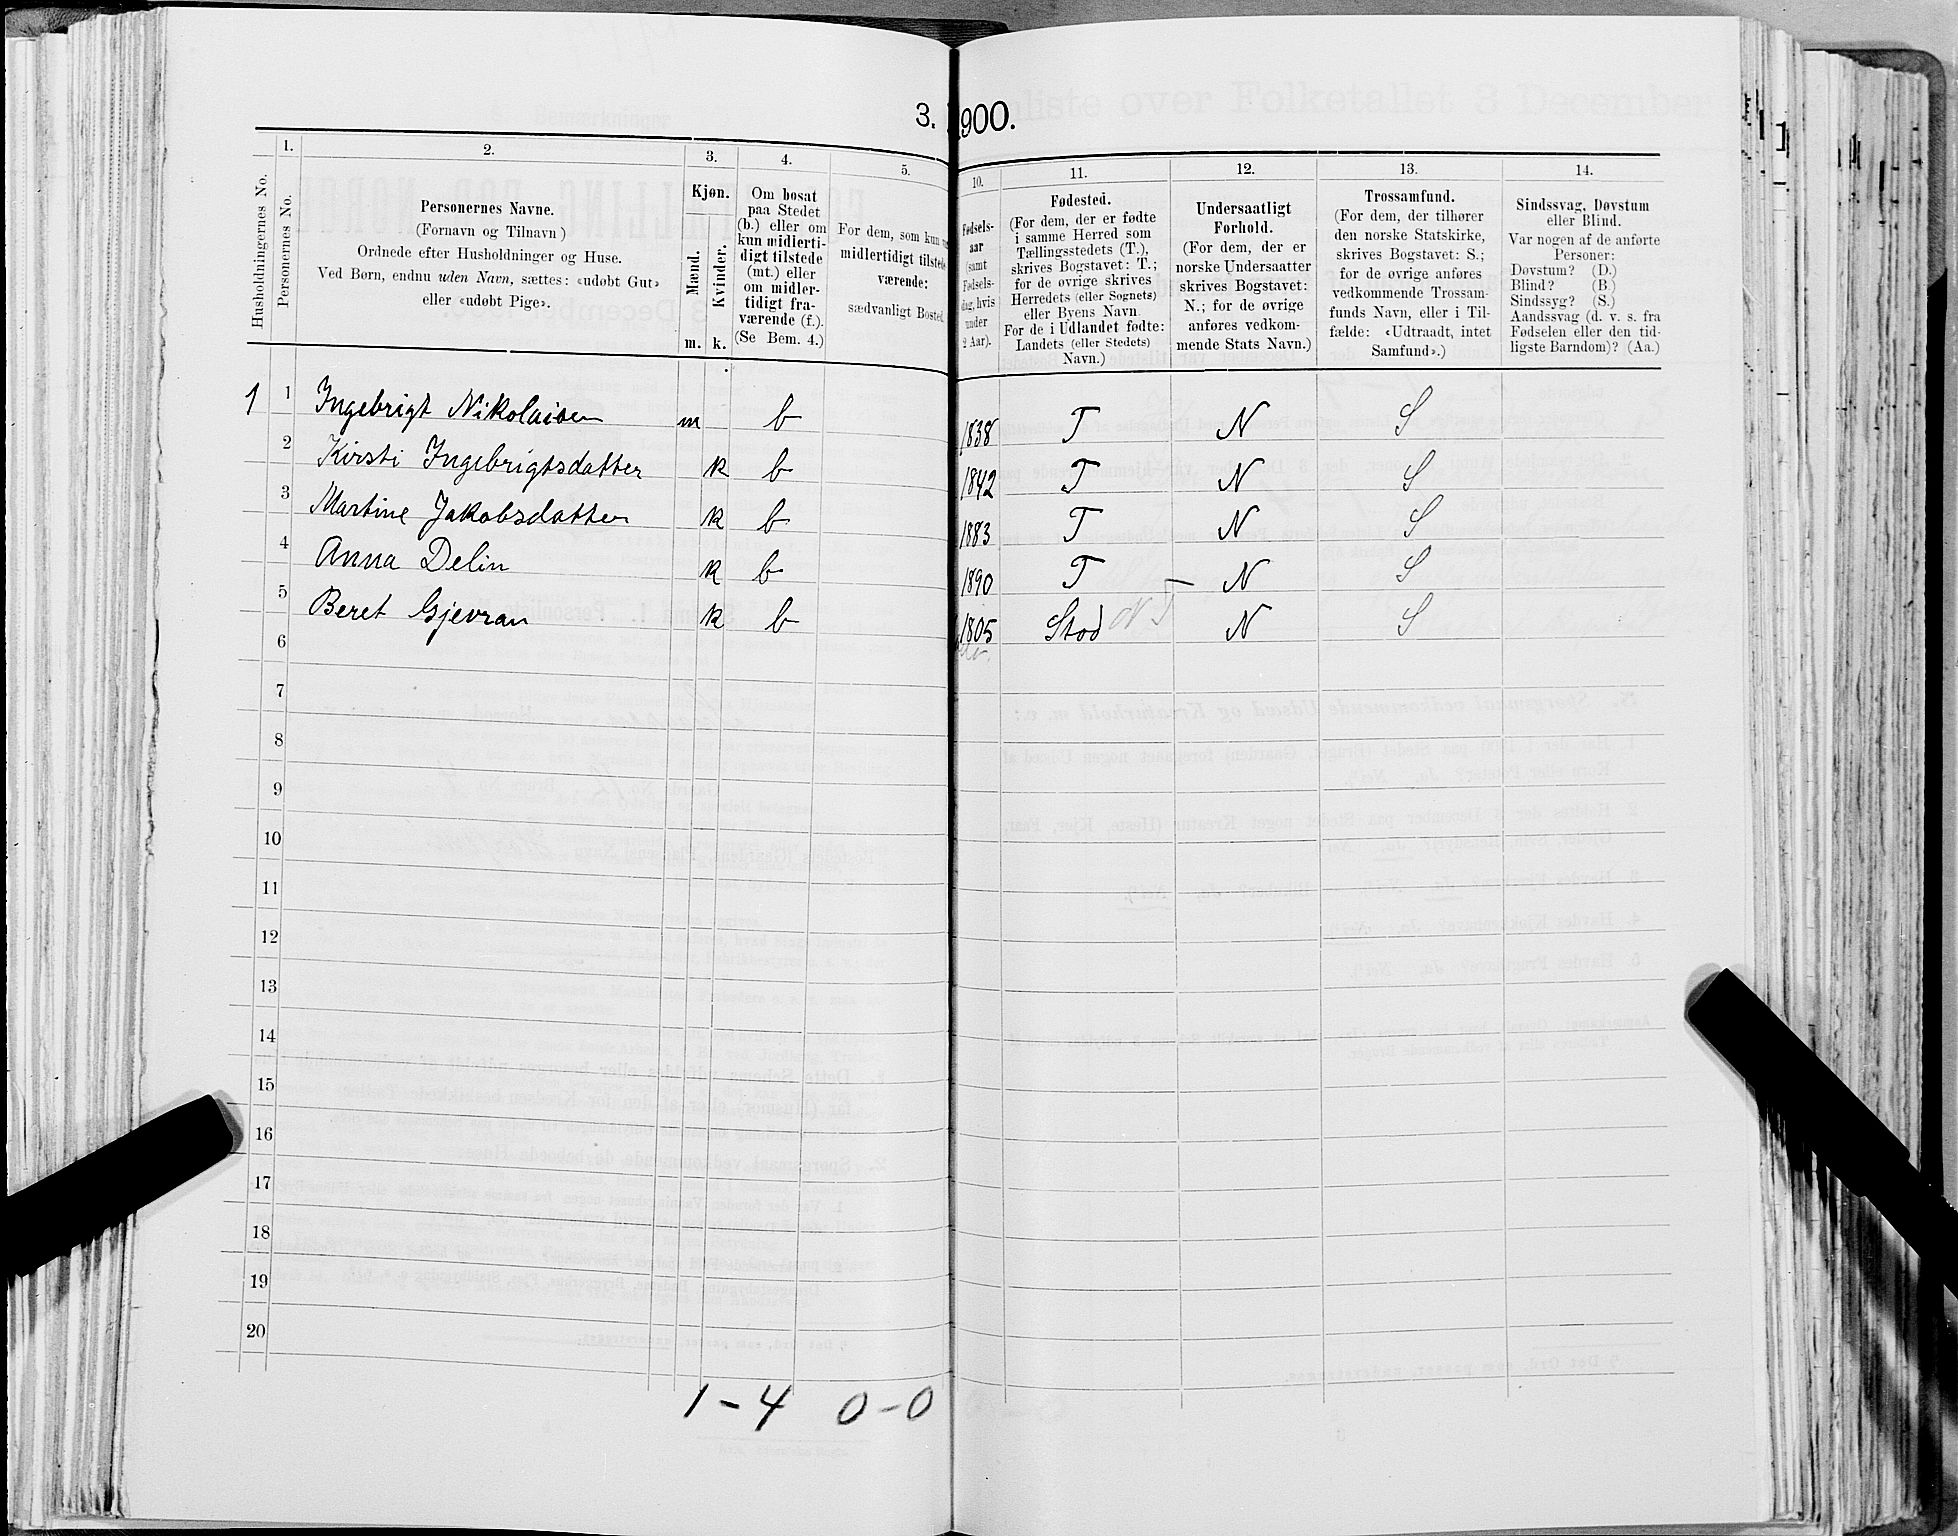 3. 1900.
1.
2.
3.
4.
5.
Husholdningernes No.
Personernes No.
Personernes Navne.
(Fornavn og Tilnavn)
Ordnede efter Husholdninger og Huse.
Ved Børn, endnu uden Navn, sættes: «udøbt Gut»
eller «udøbt Pige».
Kjøn.
Mænd.
Kvinder.
m. k.
Om bosat
paa Stedet
(b.) eller om
kun midlerti-
digt tilstede
(mt.) eller
om midler-
tidigt fra-
værende (f.).
(Se Bem. 4.)
For dem, som kun
midlertidigt tilstede
værende:
sædvanligt Bosted.
10.
11.
12.
13.
14.
Fødsels-
aar
(samt
Fødsels-
dag, hvis
under
2 Aar).
Fødested.
(For dem, der er fødte
i samme Herred som
Tællingsstedets (T.),
skrives Bogstavet: T.;
for de øvrige skrives
Herredets (eller Sognets)
eller Byens Navn
For de i Udlandet fødte:
Landets (eller Stedets)
Navn.)
Undersaatligt
Forhold.
(For dem, der er
norske Undersaatter
skrives Bogstavet:
N.; for de øvrige
anføres vedkom-
mende Stats Navn.)
Trossamfund.
(For dem, der tilhører
den norske Statskirke,
skrives Bogstavet: S.;
for de øvrige anføres
vedkommende Trossam-
funds Navn, eller i Til-
fælde: «Udtraadt, intet
Samfund».)
Sindssvag, Døvstum
eller Blind.
Var nogen af de anførte
Personer:
Døvstum? (D.)
Blind? (B.)
Sindssyg? (S.)
Aandssvag (d. v. s. fra
Fødselen eller den tid-
ligste Barndom)? (Aa.)
1 1 Ingebrigt Nikolaisen m b 1838 T N S
2 Kirsti Ingebrigtsdatter k b 1842 T N S
3 Martine Jakobsdatter k b 1883 T N S
4 Anna Delin k b 1890 T N S
5 Beret Gjevran k b 1805 Stod N T N S
6
7
8
9
10
11
12
13
14
15
16
17
18
19
20
1 - 4 0 - 0